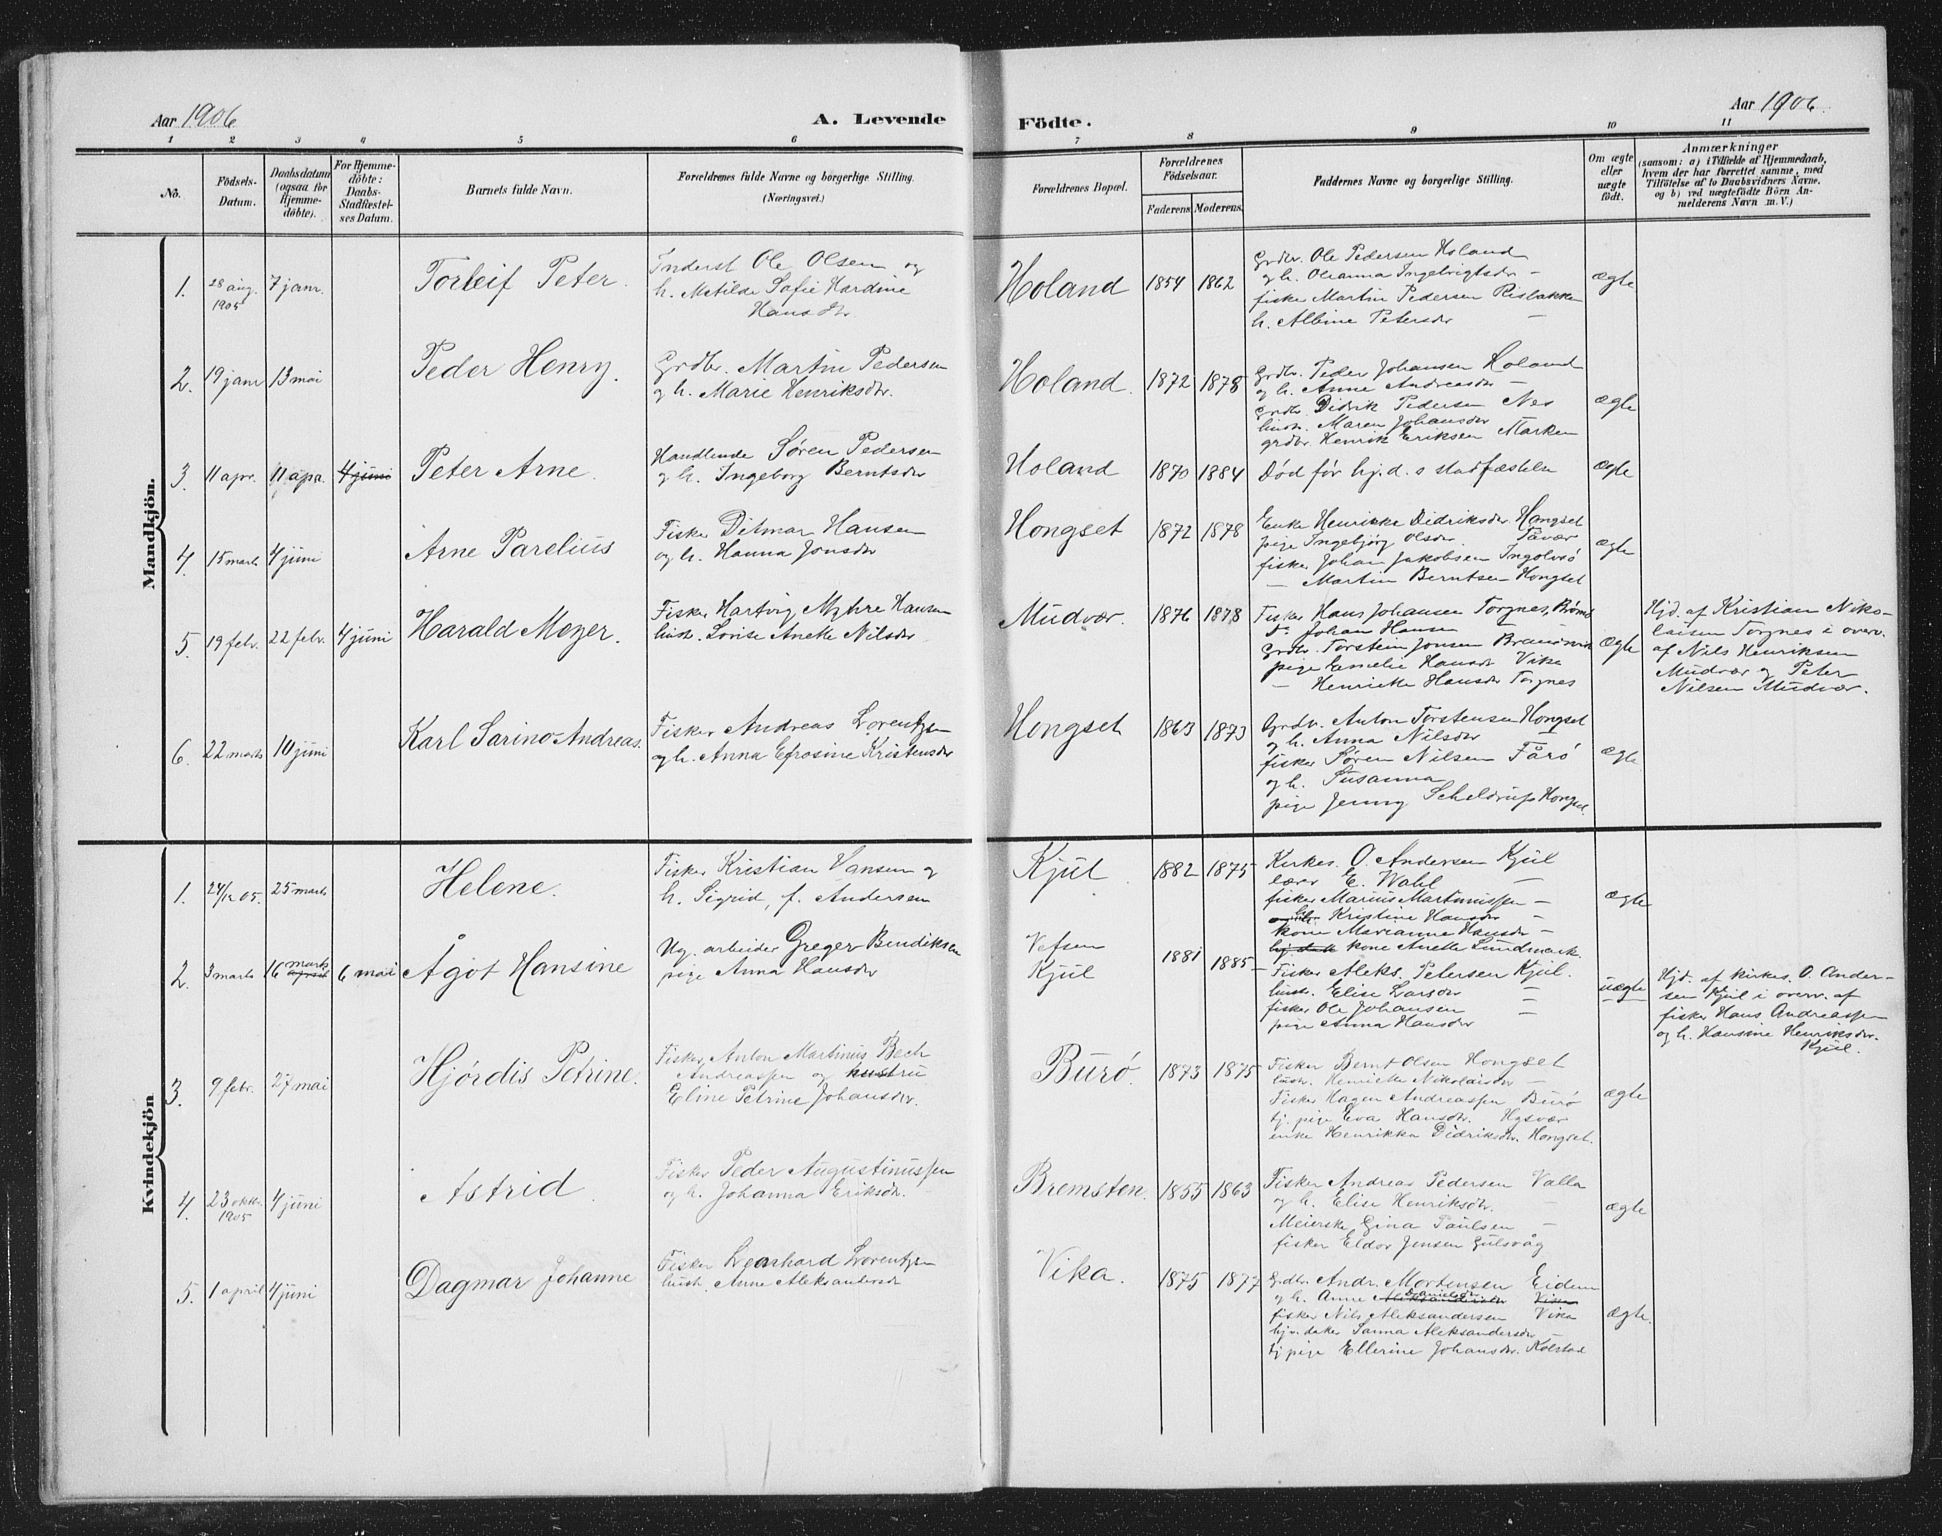 Aar 1906
A. Levende
Födte.
Aar 1906.
1 2 3 4 5 6 7 8 9 10 11
Nô.
Födsels-
Datum.
Daabsdatum
(ogsaa for
Hjemme-
döbte).
For Hjemme-
döbte:
Daabs-
Stadfæstel-
ses Datum.
Barnets fulde Navn.
Forældrenes fulde Navne og borgerlige Stilling.
(Næringsvei.)
Forældrenes Bopæl.
Forældrenes
Födselsaar.
Faderens. Moderens.
Faddernes Navne og borgerlige Stilling.
Om ægte
eller
uægte
födt.
Anmærkninger
(saasom: a) i Tilfælde af Hjemmedaab,
hvem der har forrettet samme, med
Tilföielse af to Daabsvidners Navne,
og b) ved uægtefödte Börn An-
melderens Navn m. V.)
Mandkjön.
1. 28 aug. 1905 7 janr. Torleif Peter.
Inderst Ole Olsen og
h. Matilde Sofie Hardine
Hansdtr.
Holand 1854 1862
Grdbr. Ole Pedersen Holand
og h. Oleanna Ingebrigtsdr —
fisker Martin Pedersen Risbakken
h. Albine Petersdr —
ægte
2. 19 janr 13 mai Peder Henry.
Grdbr. Martin Pedersen
og h. Marie Henriksdr.
Holand. 1872 1878
Grdbr. Peder Johansen Holand
og h. Anne Andreasdr —
Grdbr. Didrik Pedersen Nes
hustr. Maren Johansdr
grdbr. Henrik Eriksen Marken
ægte
3. 11 apr. 11 apr. 4 juni Peter Arne.
Handlende Søren Pedersen
og h. Ingeborg Berntsdr
Holand 1870 1884
Død før hj.d. s stadfæstelse
ægte
4. 15 marts 4 juni Arne Parelius
Fisker Ditmar Hansen
og h. Hanna Jonsdr
Hongset 1872 1878
Enke Henrikke Didriksdr. Hongset
pige Ingebjørg Olsdr. Tåvær
fisker Johan Jakobsen Ingolvsö
— Martin Berntsen Hongset
ægte
5. 19 febr. 22 febr. 4 juni Harald Meyer.
Fisker Hartvig Myhre Hansen
hustr. Lovise Anette Nilsdr
Mudvær. 1876 1878
Fisker Hans Johansen Torgnes, Brømö
Do Johan Hansen
Grdbr. Torstein Jonsen
pige Emelie Hansdr Vika
— Henriette Hansdr Torgnes
ægte
Hjd. af Kristian Niko-
laisen Torgnes i overv.
af Nils Henriksen
Mudvær og Peter
Nilsen Mudvær.
6. 22 marts 10 juni Karl Sarino Andreas.
Fisker Andreas Lorentzen
og h. Anna Efrosine Kristensdr
Hongset 1863 1873
Grdbr. Anton Torstensen Hongset
og h. Anna Nilsdr —
fisker Søren Nilsen Fårö
og h. Susanna
pige Jenny Scheldrup Hongset.
ægte
Kvindekjön
1. 24/12 05. 25 marts Helene.
Fisker Kristian Hansen og
h. Sigrid, f. Andersen
Kjul. 1882 1875
Kirkes. O. Andersen Kjul
lærer E. Wahl —
fisker Marius Martinussen —
Kristine Hansdr —
kone Marianne Hansdr —
kone Anette Lundmark.
ægte
2. 3 marts 16 marts april 6 mai Ågot Hansine
Ug. arbeider Greger Bendiksen
pige Anna Hansdr
Vefsen
Kjul
1881 1885
Fisker Aleks. Petersen Kjul.
hustr. Elise Larsdr —
fisker Ole Johansen —
pige Anna Hansdr
uægte
Hjd. af kirkes. O. Ander-
sen Kjul i overv. af
fisker Hans Andreassen
og h. Hansine Henriksdr.
Kjul.
3. 9 febr. 27 mai Hjørdis Petrine.
Fisker Anton Martinus Bech
Andreassen og hustru
Eline Petrine Johansdr.
Burö. 1873 1875
Fisker Bernt Olsen Hongset
hustr. Henriette Nikolaisdr —
Fisker Hagen Andreassen Burö
tj. pige Eva Hansdtr. Hysvær
enke Henrikka Didriksdr. Hongset.
ægte
4. 23 oktbr. 1905 4 juni Astrid.
Fisker Peder Augustinussen
og h. Johanna Eriksdr.
Bremsten. 1855 1863
Fisker Andreas Pedersen Valla
og h. Elise Henriksdtr. —
Meierske Gina Paulsen —
fisker Eldor Jensen Gulsvåg
ægte
5. 1 april 4 juni Dagmar Johanne
Fisker Leonhard Lorentzen
hustr. Anne Aleksandersdr
Vika. 1875 1877
Grdbr. Andr. Mortensen Eidem
og h. Anne Danielsdr Aleksandersdr Vika
fisker Nils Aleksandersen Vika
Sanna Aleksandersdr —
tj. pige Ellerine Johansdr. Kolstad
ægte.